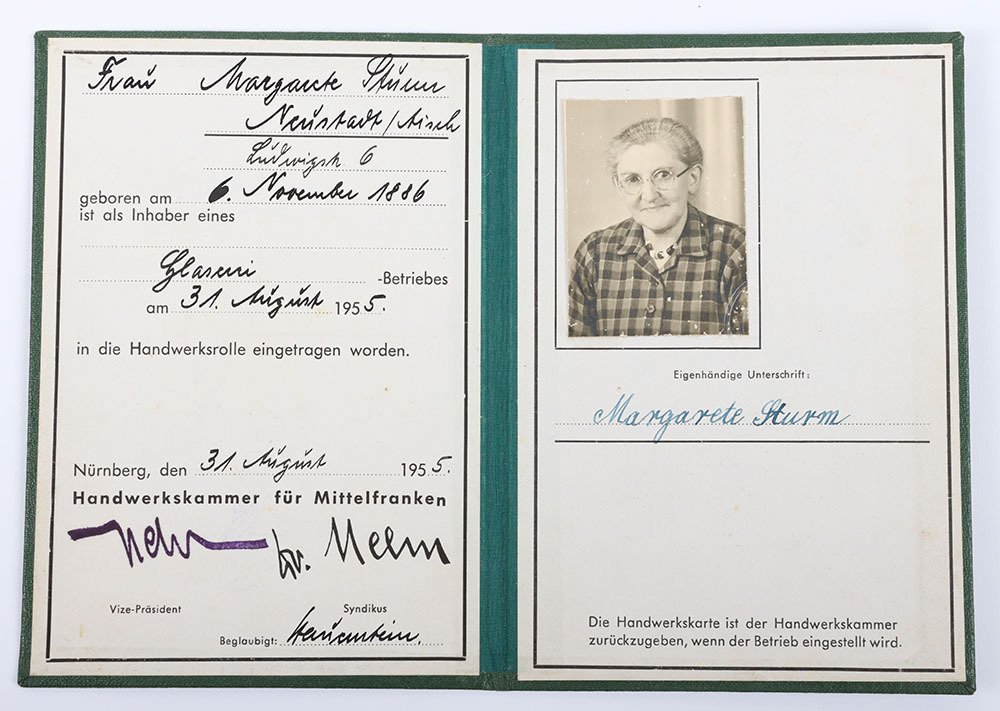 Frau Margarete Sturm
Neustadt/Aisch
Ludwigstr. 6
geboren am 6. November 1886
ist als Inhaber eines
Glaserei -Betriebes
am 31. August 1955.
in die Handwerksrolle eingetragen worden.
Nürnberg, den 31. August 1955.
Handwerkskammer für Mittelfranken
Dr.
Vize-Präsident Syndikus
Beglaubigt:
Eigenhändige Unterschrift:
Margarete Sturm
Die Handwerkskarte ist der Handwerkskammer
zurückzugeben, wenn der Betrieb eingestellt wird.